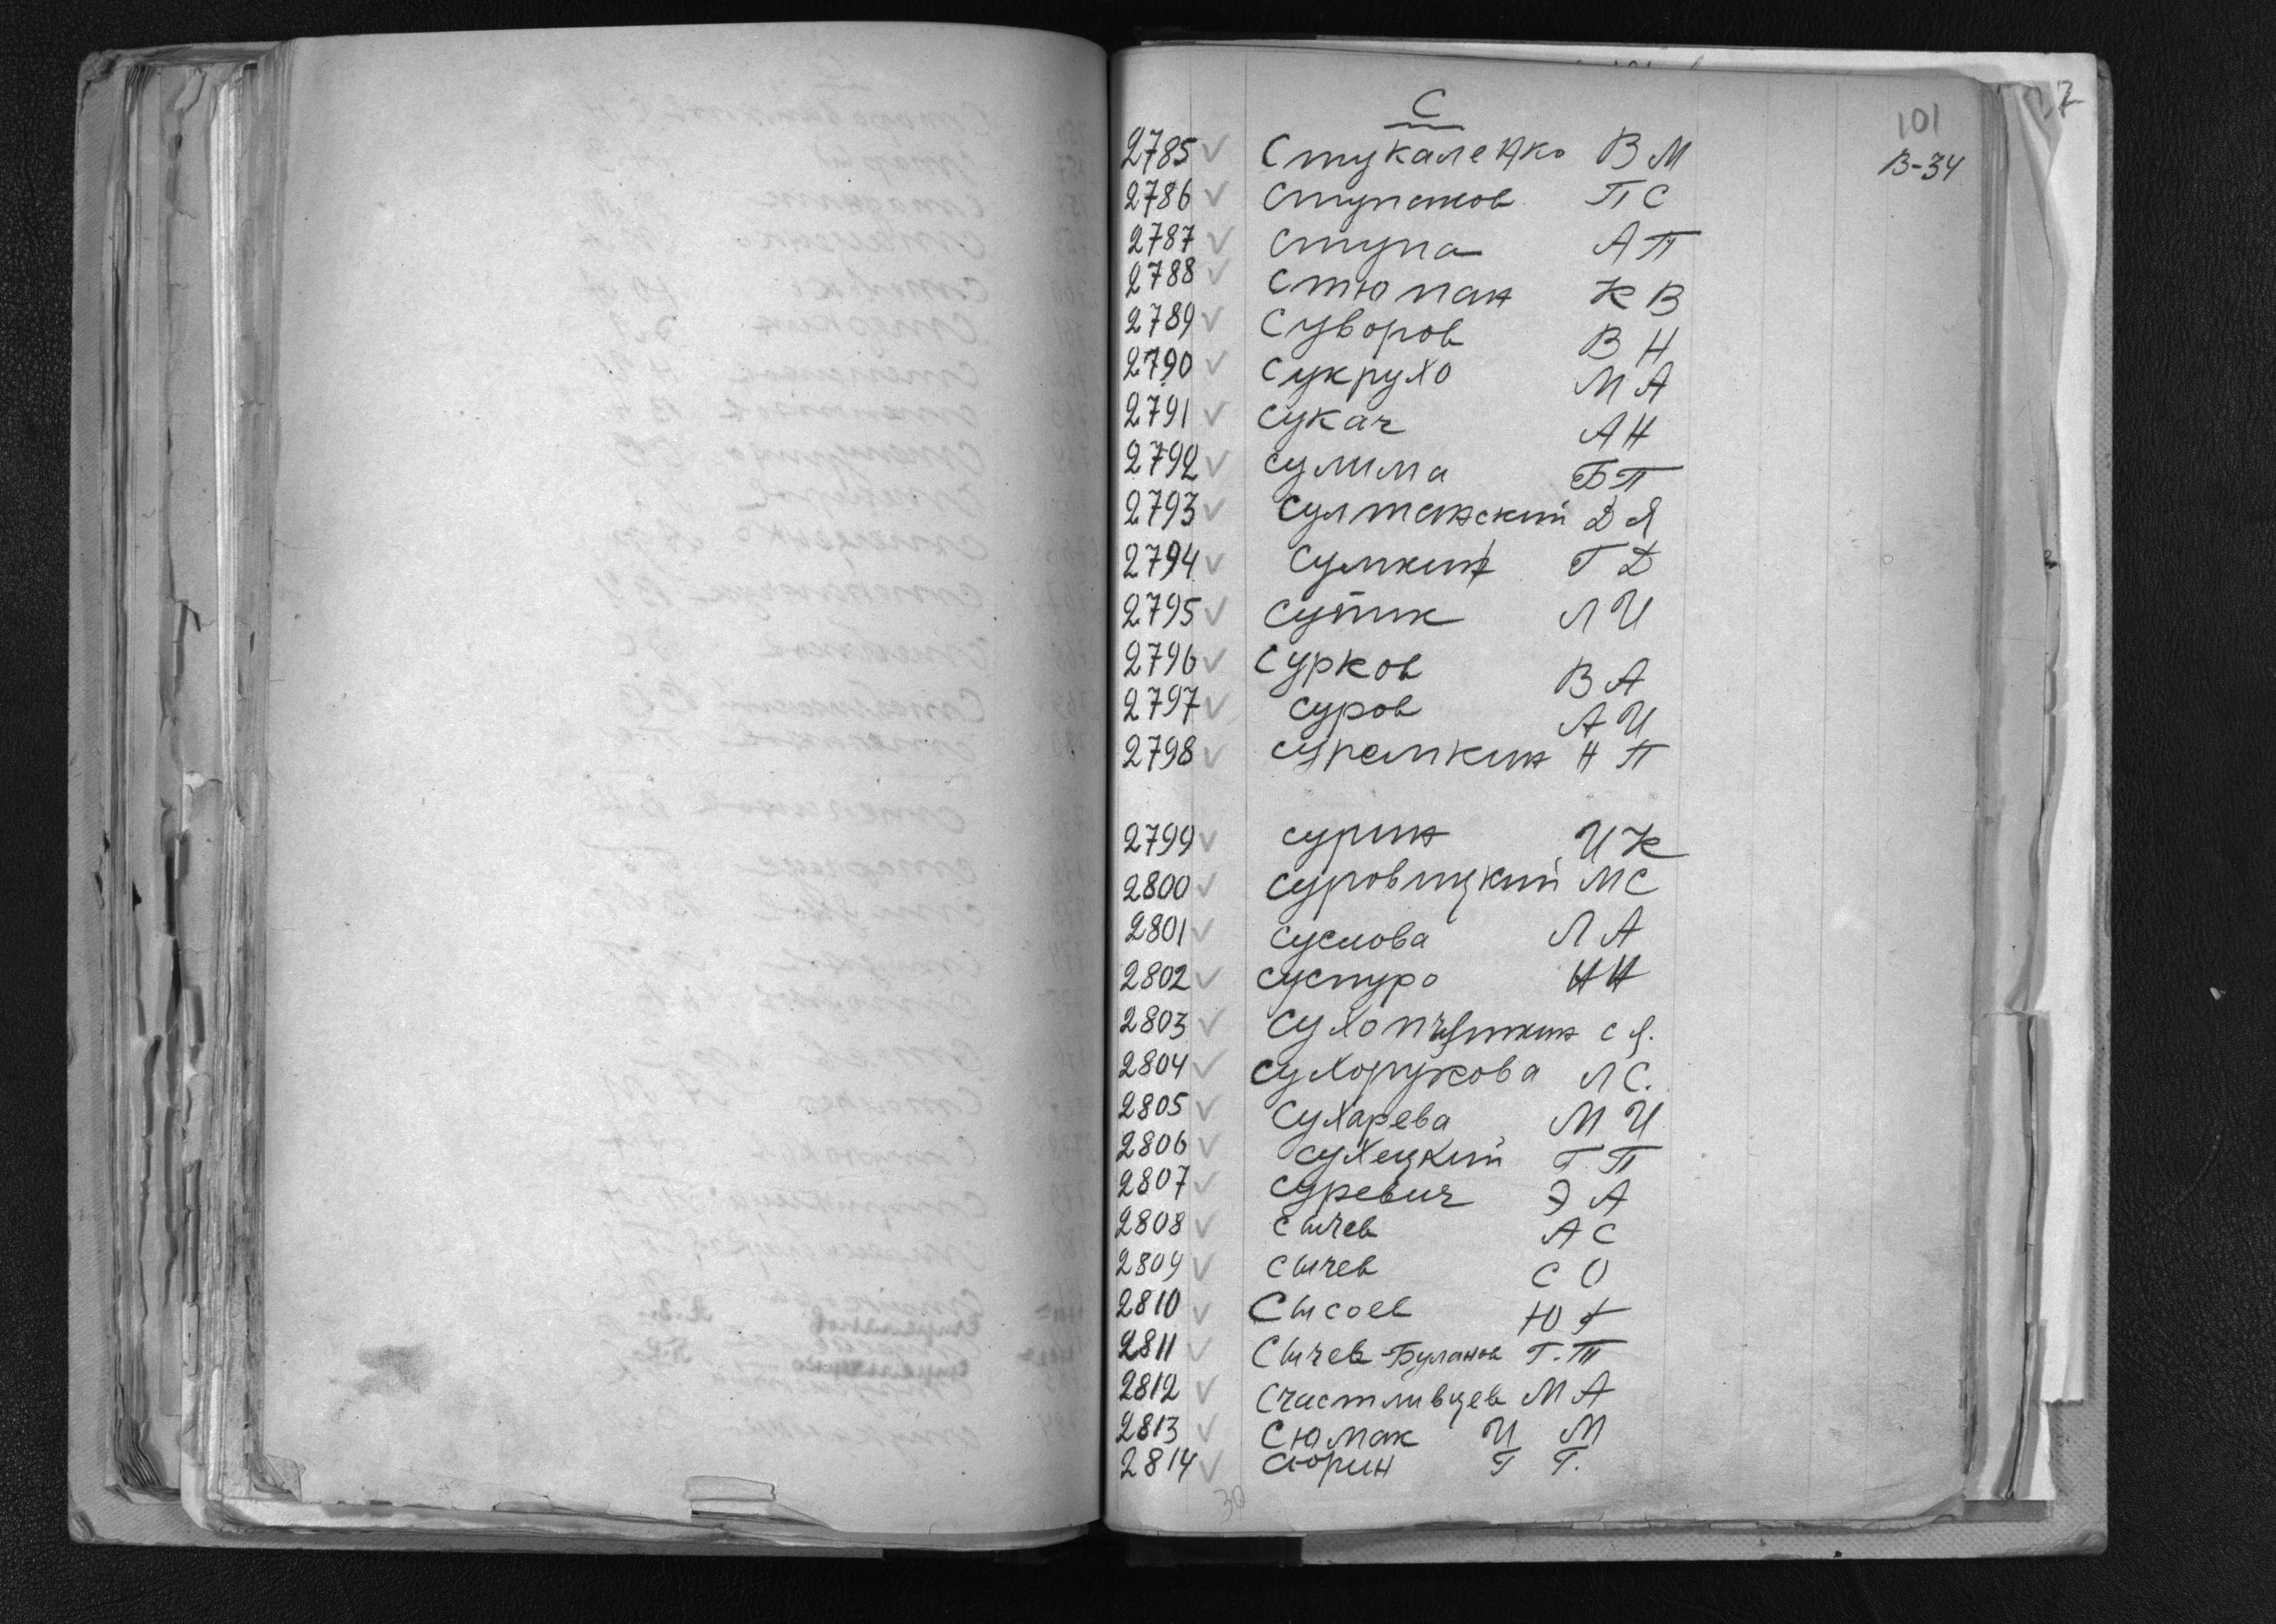 101
В-34
С
2785 Стукаленко В М
2786 Ступаков П С
2787 Ступа А П
2788 Стюпан К В
2789 Суворов В Н
2790 Сукрухо М А
2791 Сукач А Н
2792 Сулима Б П
2793 Султанский Д Я
2794 Сумкин Г Д
2795 Супик Л И
2796 Сурков В А
2797 Суров А И
2798 Сурамкин Н П
2799 Сурин И К
2800 Суровицкий М С
2801 Суслова Л А
2802 Суспуро Н Н
2803 С Я.
2804 Сухорукова Л С.
2805 Сухарева М И
2806 Сухецкий Г. П
2807 Суревич Э А
2808 Сычев А С
2809 Сычев С О
2810 Сысоев Ю
2811 Сычев-Буланов Г. Т
2812 Счастливцев М А
2813 Сюмак И М
2814 Сюрин Г Г.
30